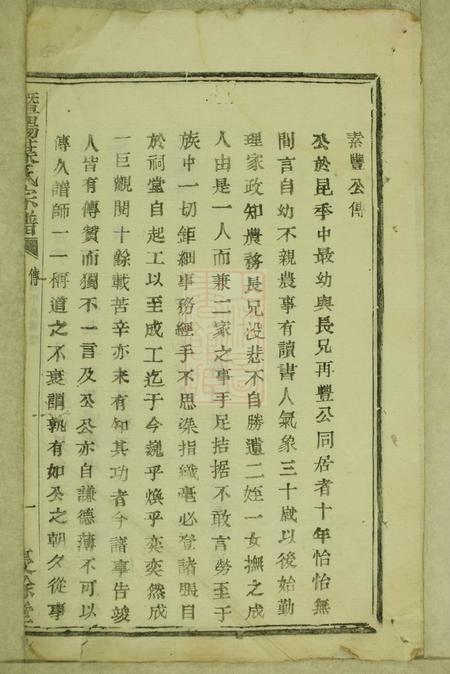 素豐公傳
公於昆季中最幼與長兄再豐公同居者十年怡怡無
間言自幼不親農事有讀書人氣象三十歲以後始勤
理家政知農務長兄没悲不自勝遺二姪一女撫之成
人由是一人而兼二家之事手足拮据不敢言勞至于
族中一切鉅細事務經手不思染指纖毫必登諸賬目
於祠堂自起工以至成工迄于今巍乎煥乎奕奕然成
一巨觀閱十餘載苦辛亦未有知其功者今譜事告竣
人皆有傳贊而獨不一言及公公亦自謙德薄不可以
傳久譜師一一稱道之不衰謂孰有如公之朝夕從事
暨陽 氏宗譜
傳
一
餘堂